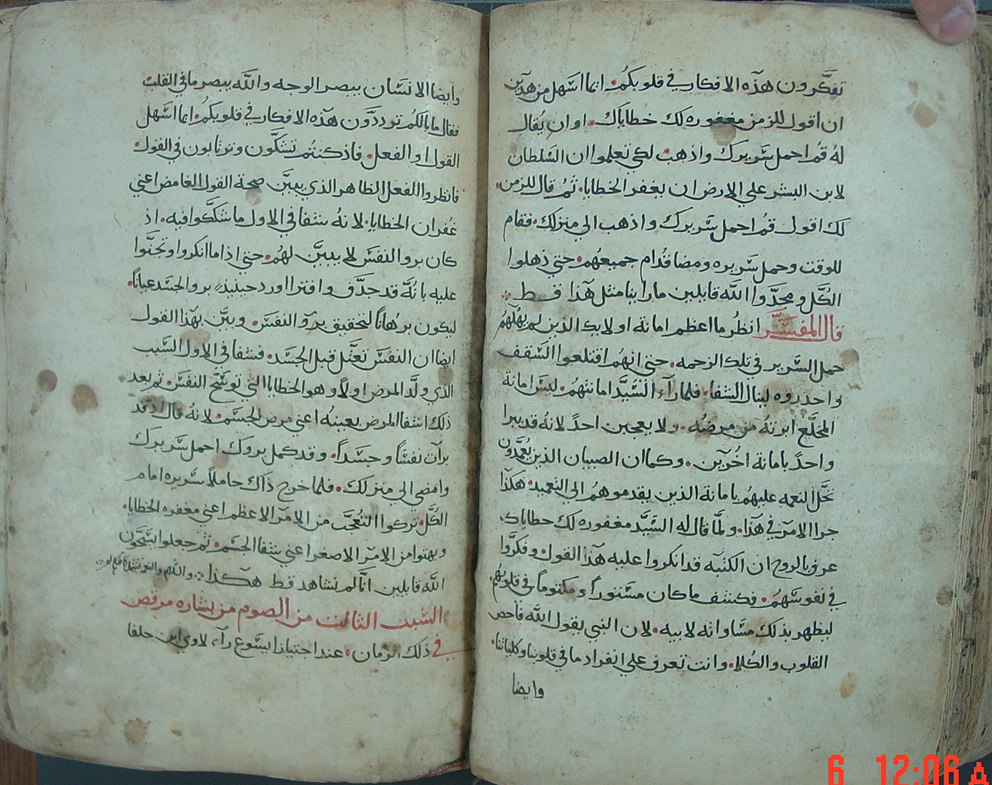 تفكرون هذه الافكار في قلوبكم. انما اسهل من هذين
ان اقول للزمن مغفوره لك خطاياك. او ان يقال
له قم احمل سريرك واذهب. لكي تعلموا ان السلطان
لابن البشر علي الارض ان يغفر الخطايا. ثم قال للزمن.
لك اقول قم احمل سريرك واذهب الي منزلك. فقام
للوقت وحمل سريره ومضا قدام جميعهم. حتي ذهلوا
الكل ومجدوا الله قايلين ما راينا مثل هذا قط
قال المفسر انظر ما اعظم امانة اولايك الذين لم يهلهم
حمل السرير في تلك الزحمه. حتي انهم اقتلعوا السقف
واحدروه لينال الشفا. فلما رآء السيد امانتهم. ليس امانة
المخلع ابرته من مرضه. ولا يعجبن احدا لانه قد يبرا
واحد بامانة اخرين. وكما ان الصبيان الذين يعمدون
تحل النعمه عليهم بامانة الذين يقدموهم الي التعميد. هكذا
جرا الامر في هذا. ولما قال له السيد مغفوره لك خطاياك.
عرف بالروح ان الكتبه قد انكروا عليه هذا القول وفكروا
في نفوسهم. فكشف ما كان مستورا ومكتوما في قلوبهم
ليظهر بذلك مساواته لابيه. لان النبي يقول الله فاحص
القلوب والكلا. وانت تعرف علي انفراد ما في قلوبنا وكلياتنا.
وايضا
وايضا الانسان يبصر الوجه والله يبصر ما في القلب
فقال ما بالكم تودون هذه الافكار في قلوبكم. انما اسهل
القول او الفعل. فاذ كنتم تشكون وترتابون في القول.
فانظروا الفعل الظاهر الذي يبين صحة القول الغامض اعني
غفران الخطايا. لانه شفا في الاول ما شكوا فيه. اذ
كان برو النفس لا يبين لهم. حتي اذا ما انكروا وتجنوا
عليه بانه قد جدف وافترا اورد حينيذ برو الجسد عيانا.
ليكون برهانا لتحقيق برو النفس. وبين بهذا القول
ايضا ان النفس تعتل قبل الجسد. فشفا في الاول السبب
الذي ولد المرض اولا وهو الخطايا التي توسخ النفس. ثم بعد
ذلك شفا المرض بعينه اعني مرض الجسم. لانه قال له قد
برات نفسا وجسدا. وقد كمل بروك احمل سريرك
وامضي الي منزلك. فلما خرج ذاك حاملا سريره امام
الكل. تركوا التعجب من الامر الاعظم اعني مغفره الخطايا.
وبهتوا من الامر الاصغر اعني شفا الجسم. ثم جعلوا يسبحون
الله قايلين اننا لم نشاهد قط هكذا.
السبت الثالث من الصوم من بشاره مرقص
في ذلك الزمان. عند اجتياز ايسوع رآء لاوي ابن حلفا